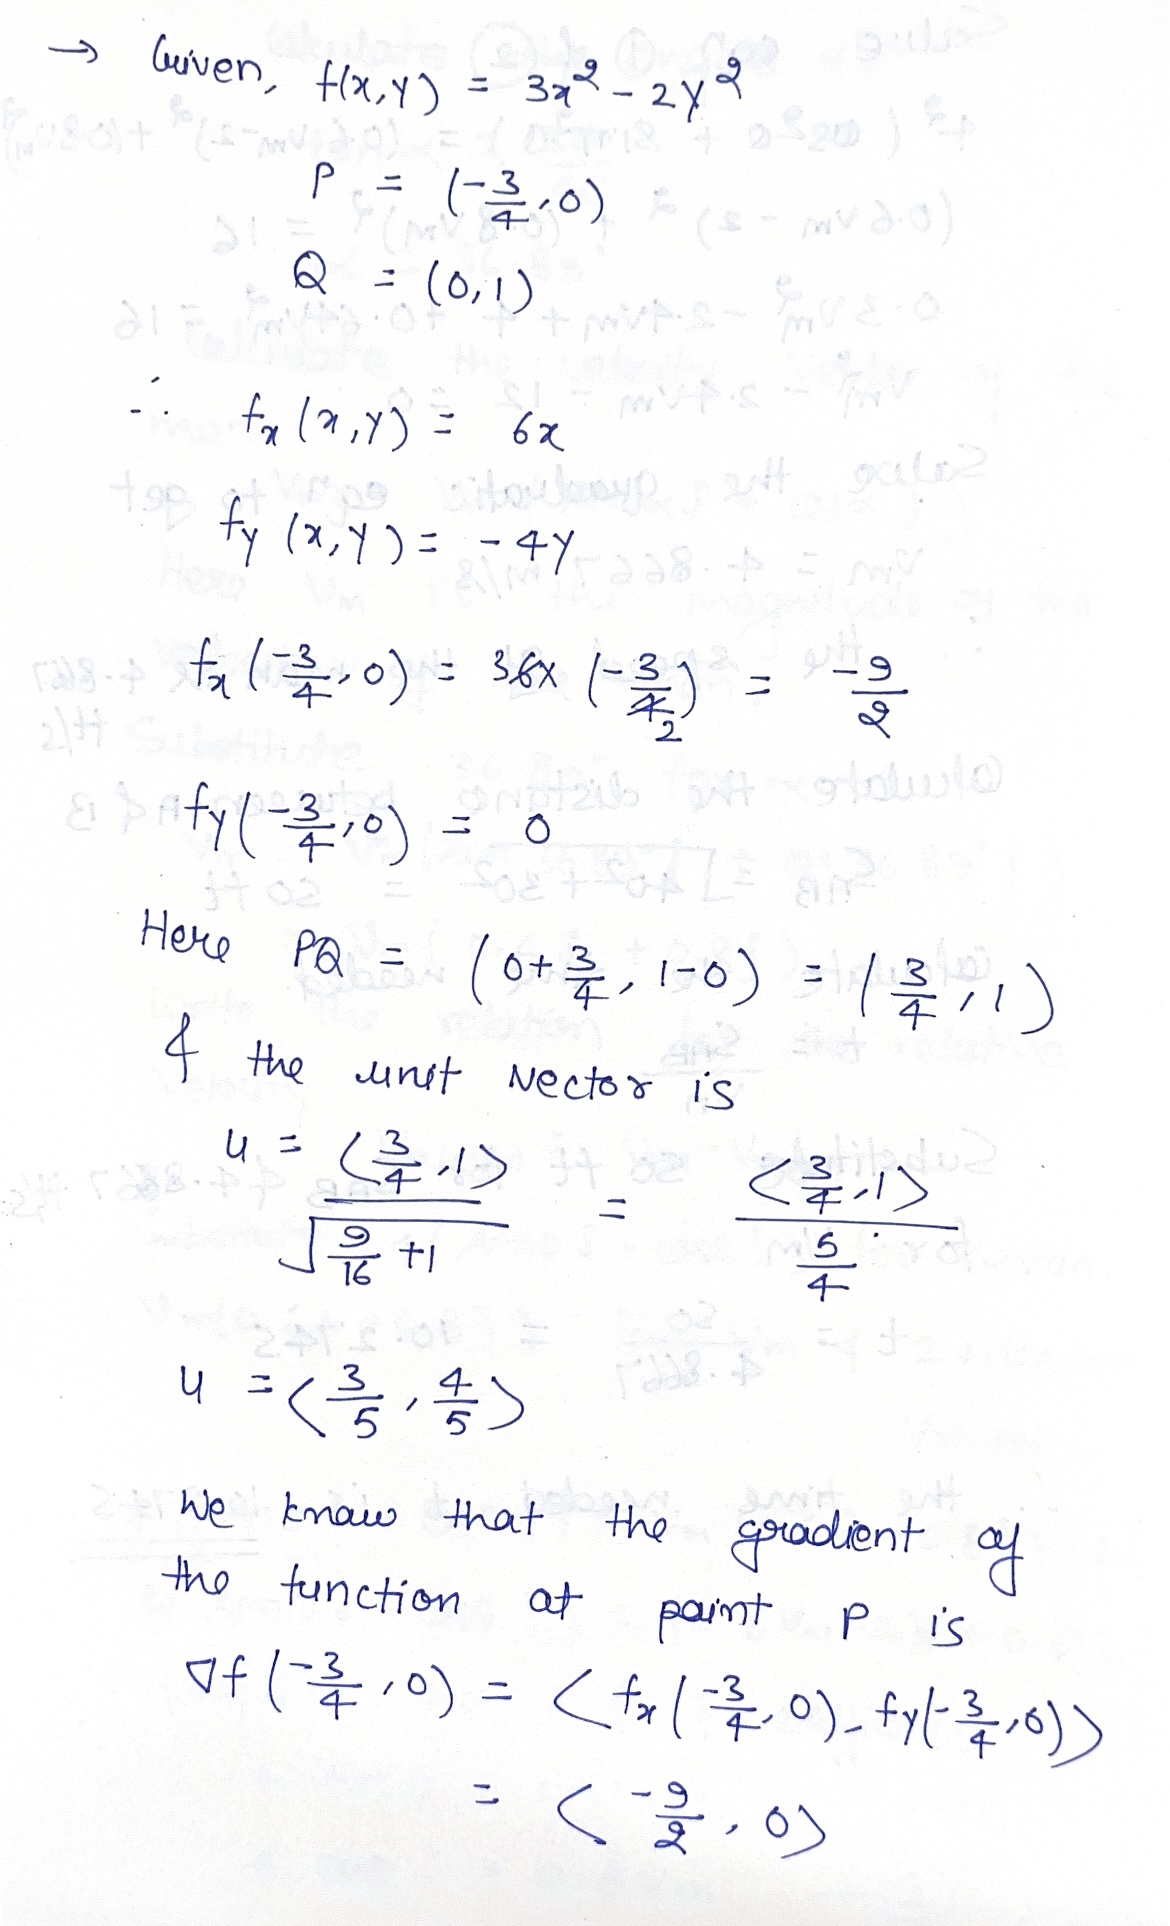 → Given, f(x,y) = 3x² - 2y²
P = (-3/4, 0)
Q = (0,1)
∴ fx (x,y) = 6x
fy (x,y) = -4y
fx (-3/4, 0) = 3 6 x (-3/4 2) = -9/2
fy (-3/4, 0) = 0
Here PQ = (0+3/4, 1-0) = (3/4, 1)
& the unit vector is
u = <3/4, 1> / √(9/16 + 1) = <3/4, 1> / (5/4)
u = <3/5, 4/5>
We know that the gradient of
the function at point P is
∇f (-3/4, 0) = <fx (-3/4, 0), fy (-3/4, 0)>
= <-9/2, 0>